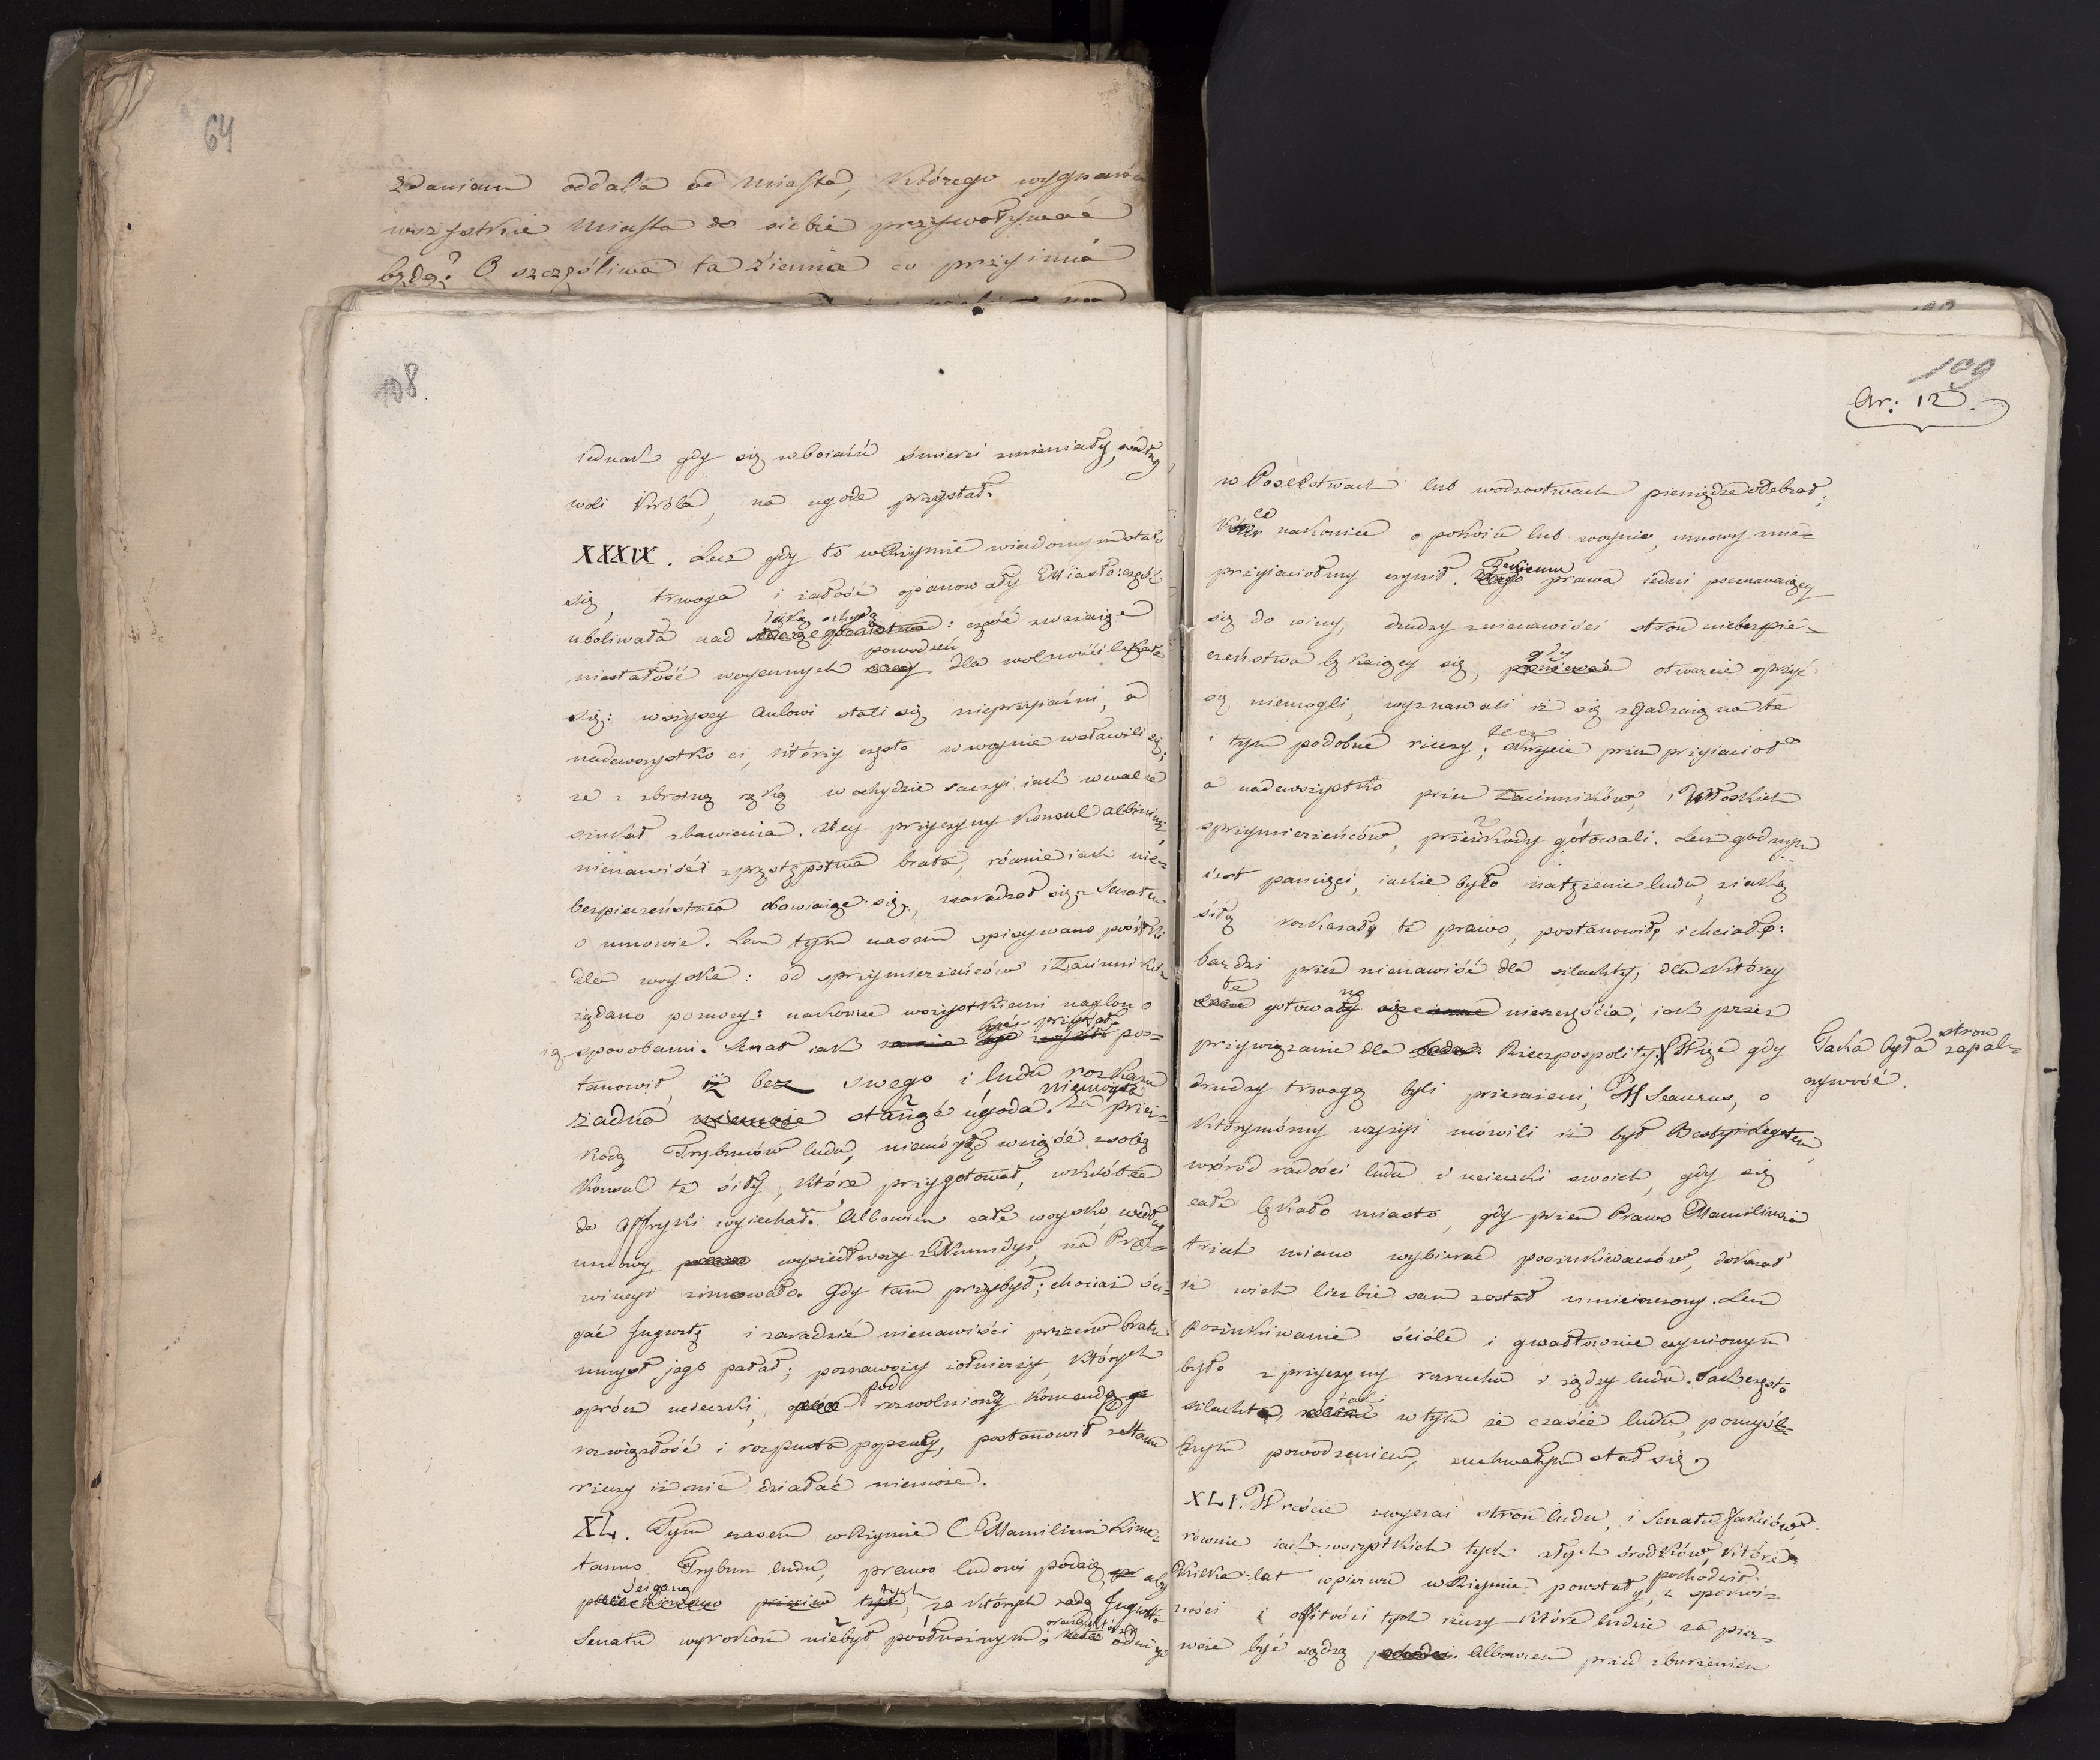 64
zdaniem oddala od Miasta, którego wygnańca
wszystkie Miasta do siebie przyswoływać
będą? O szczęśliwa ta ziemia co przyimie
108.
iednak gdy się w boiaźń śmierci zmieniały, według
woli Króla, na ugodę przystał.
XXXIX. Lecz gdy to w Rzymie wiadomym stało
się, trwoga i żałość opanowały Miasto: część
taką ochydą
uboliwała nad : część zważaiąc
powodzeń
niestałość woiennych dla wolności lękała
się: wszyscy Aulowi stali się nieprzyiaźni, a
nadewszystko ci, którzy często w woynie wsławili się,
że z zbroyną ręką w ochydzie raczyi iak w walce
szukał zbawienia. Z tey przyczyny Konsul Albinus
nienawiści z przestępstwa brata, równie iak nie=
bezpieczeństwa obawiaiąc się, naradzał się z Senatem
o umowie. Lecz tym czasem spisywano posiłki
dla woyska: od sprzymierzeńców i Łacinników
żądano pomocy: nakoniec wszystkiemi naglono
być przystało
sposobami. Senat iak pos=
tanowił, iż bez swego i ludu rozkazu
niemogła
żadna stanąć ugoda. Za przesz=
kodą Trybunów ludu, niemogąc wziąść z sobą
Konsul te siły, które przygotował, wkrótce
do Affryki wyiechał. Albowiem całe woysko według
umowy, wyszedłszy z Numidyi, na Pro=
wincyi zimowało. Gdy tam przybył; chociaż ści=
gać Jugurtę i zaradzić nienawiści przeciw bratu
umysł jego pałał; poznawszy żołnierzy, których
pod
oprócz ucieczki, rozwolnioną komendą
rozwiązłość i rozpusta popsuły, postanowił z stanu
rzeczy iż nic działać niemoże.
XL. Tym czasem w Rzymie C Mamilius Lime=
tanus Trybun ludu, prawo ludowi podaie aby
ścigano
tych, za których radą Jugurta
oraz którzy
Senatu wyrokom niebył posłusznym, od niego
109
Ar: 12.
w Poselstwach lub wodzostwach pieniądze odebrał;
co
nakoniec o pokoiu lub woynie, umowy z nie=
Takiemu
przyiaciołmy czynił. prawa iedni poznawaiący
się do winy, drudzy z nienawiści stron niebezpie=
gdy
czeństwa lękaiący się, otwarcie oprzyć
się niemogli, wyznawali iż się zgadzaią na te
lecz
i tym podobne rzeczy; skrycie przez przyiaciół
a nadewszystko przez Łacinników, i Włoskich
sprzymierzeńców, przeszkody gotowali. Lecz godnym
iest pamięci, iakie było natężenie ludu, z iaką
siłą rozkazały te prawo, postanowiły i chciały:
bardzi przez nienawiść dla szlachty, dla którey
te no
gotowa nieszczęścia, iak przez
przywiązanie dla Rzeczpospolitey. Więc gdy
Taka była stron zapal=
czywość.
drudzy trwogą byli przerażeni, M Scaurus, o
którymśmy wyżyi mówili iż był Bestyi Legatem,
wśród radości ludu i ucieczki swoich, gdy się
całe lękało miasto, gdy przez Prawo Mamiliusza
trzech miano wybierać poszukiwaczów, dokazał
iż w ich liczbie sam został umieszczony. Lecz
poszukiwanie ściśle i gwałtownie czynionym
było z przyczyny rozruchu i żądzy ludu. Jak często
tak
szlachta, w tym że czasie ludu, pomyśl=
nym powodzeniem, zuchwałym stał się.
XLI. W reście zwyczai stron ludu, i Senatu Fakciów
równie iak wszystkich tych złych środków, które
pochodził
Kilka lat wpierwu w Rzymie powstały, z spokoi=
ności i obfitości tych rzeczy które ludzie za pier=
wsze być sądzą Albowiem przed zburzeniem